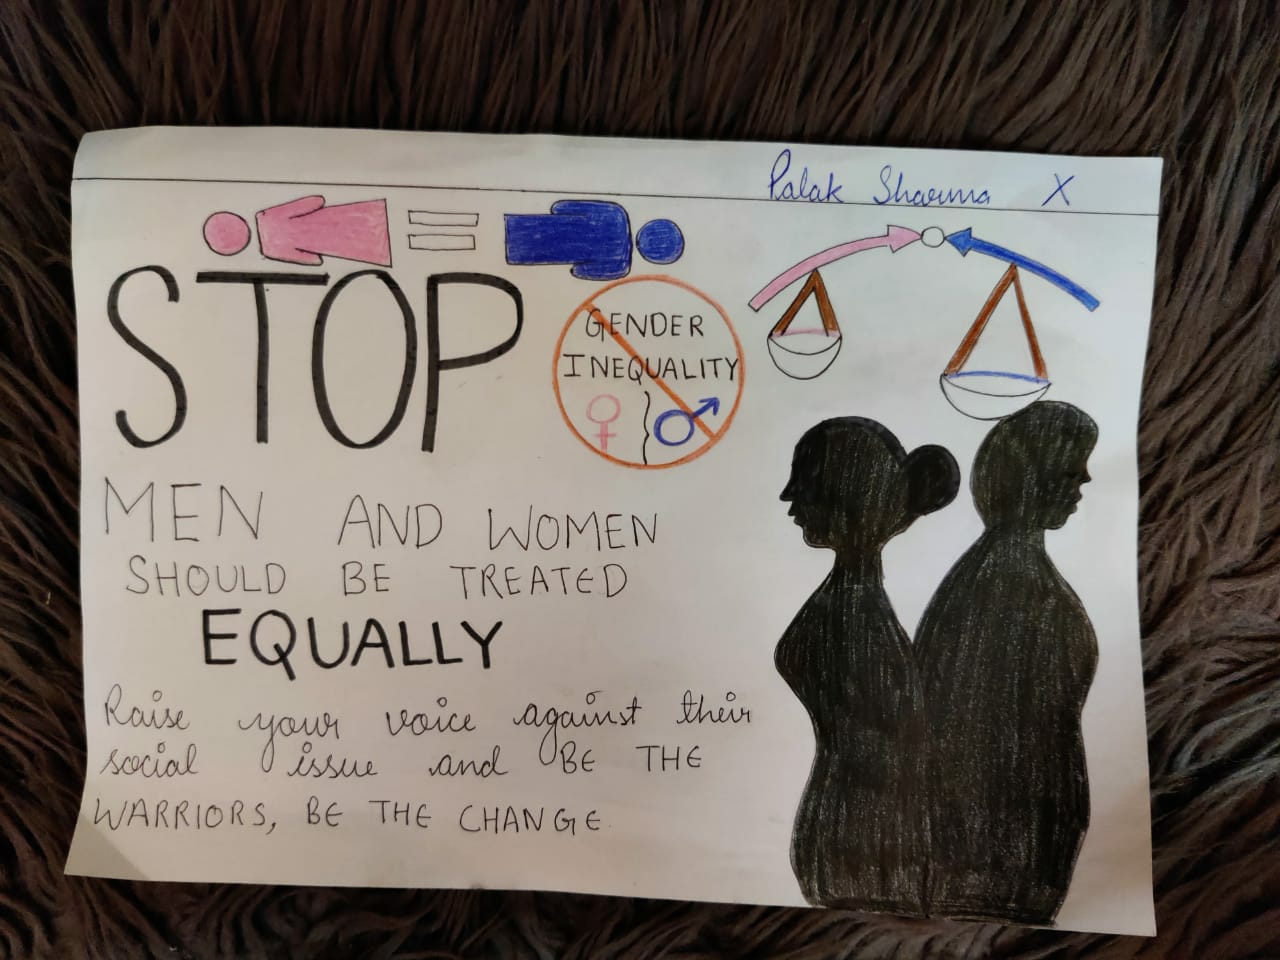 Palak Sharma X
STOP
GENDER
INEQUALITY
MEN AND WOMEN
SHOULD BE TREATED
EQUALLY
Raise your voice against their
social issue and BE THE
WARRIORS, BE THE CHANGE.